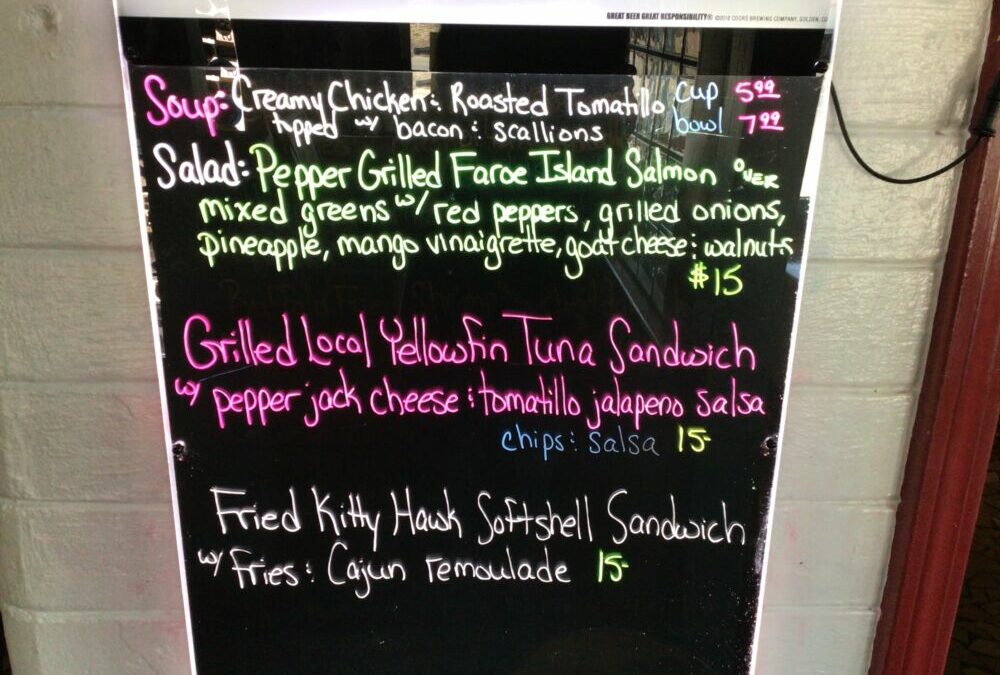 GREAT BEER GREAT RESPONSIBILITY® ©2010 COORS BREWING COMPANY, GOLDEN, CO
Soup: Creamy Chicken : Roasted Tomatillo cup 5.99
topped w/ bacon : scallions bowl 7.99
Salad: Pepper Grilled Faroe Island Salmon OVER
mixed greens w/ red peppers, grilled onions,
pineapple, mango vinaigrette, goat cheese : walnuts
$15
Grilled Local Yellowfin Tuna Sandwich
w/ pepper jack cheese : tomatillo jalapeno salsa
chips : salsa 15-
Fried Kitty Hawk Softshell Sandwich
w/ Fries : Cajun remoulade 15-